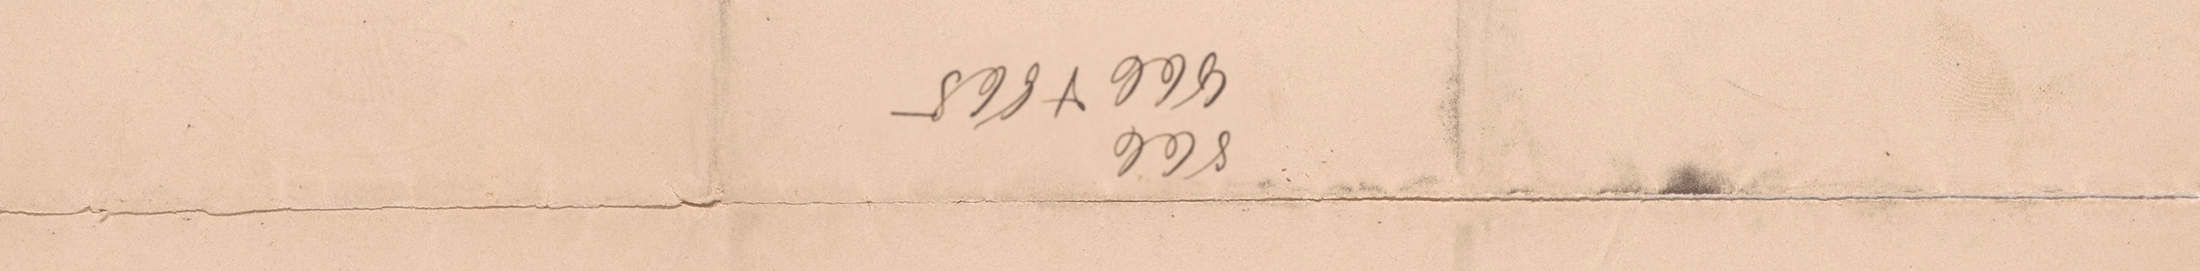 866
866 + 865